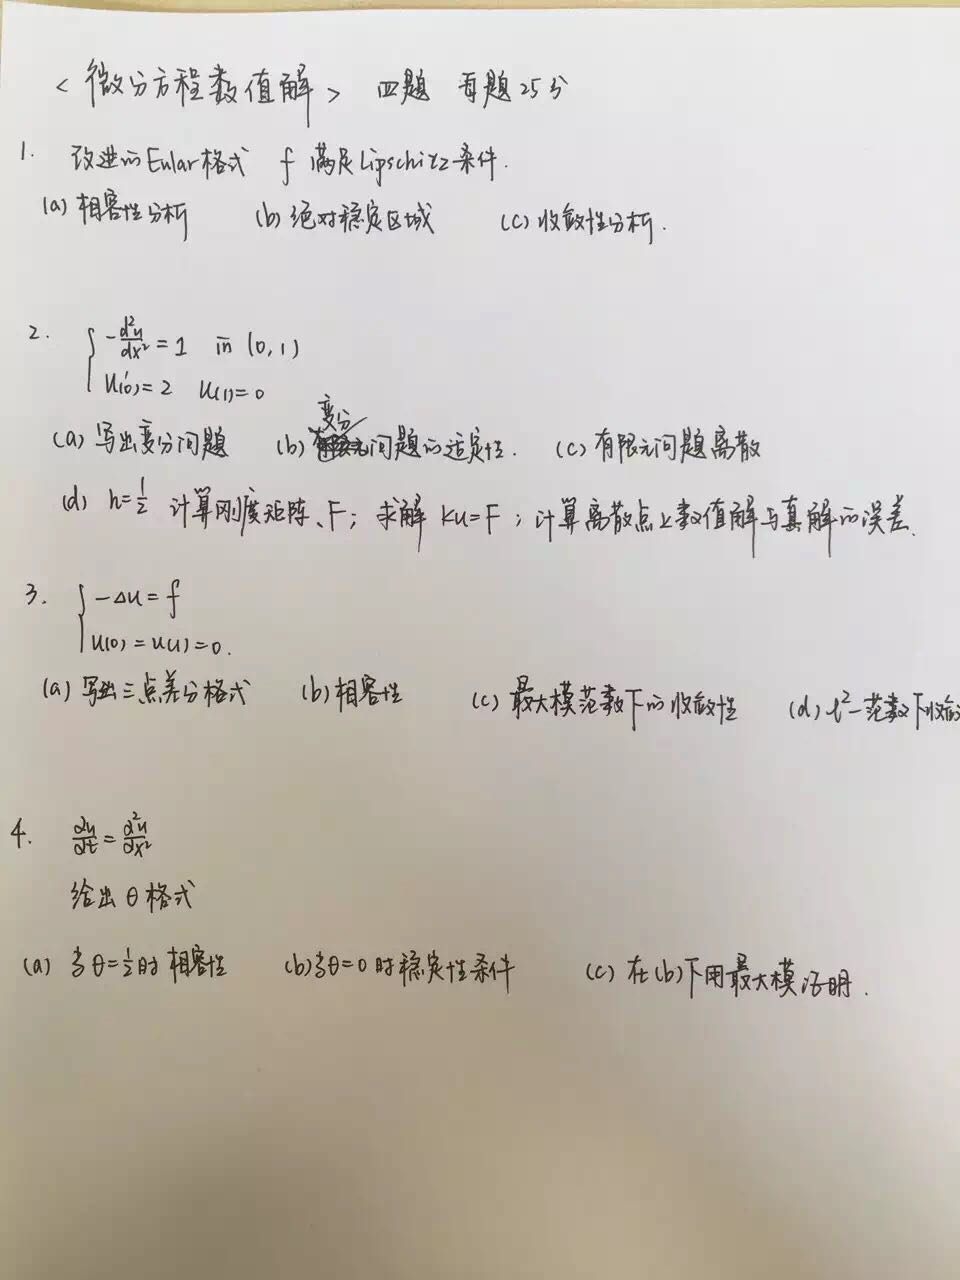 <微分方程数值解> 四题 每题25分
1. 改进的Eular格式 f 满足Lipschitz条件.
(a) 相容性分析 (b) 绝对稳定区域 (c) 收敛性分析.
2. { -d²u/dx² = 1 in (0,1)
u'(0)=2 u(1)=0
变分
(a) 写出变分问题 (b) 问题的适定性. (c) 有限元问题离散
(d) h=1/2 计算刚度矩阵、F; 求解 Ku=F; 计算离散点上数值解与真解的误差.
3. { -Δu = f
u(0)=u(1)=0.
(a) 写出三点差分格式 (b) 相容性 (c) 最大模范数下的收敛性 (d) l²-范数下收敛
4. du/dt = d²u/dx²
给出θ格式
(a) 当θ=1/2时相容性 (b) 当θ=0时稳定性条件 (c) 在(b)下用最大模证明.